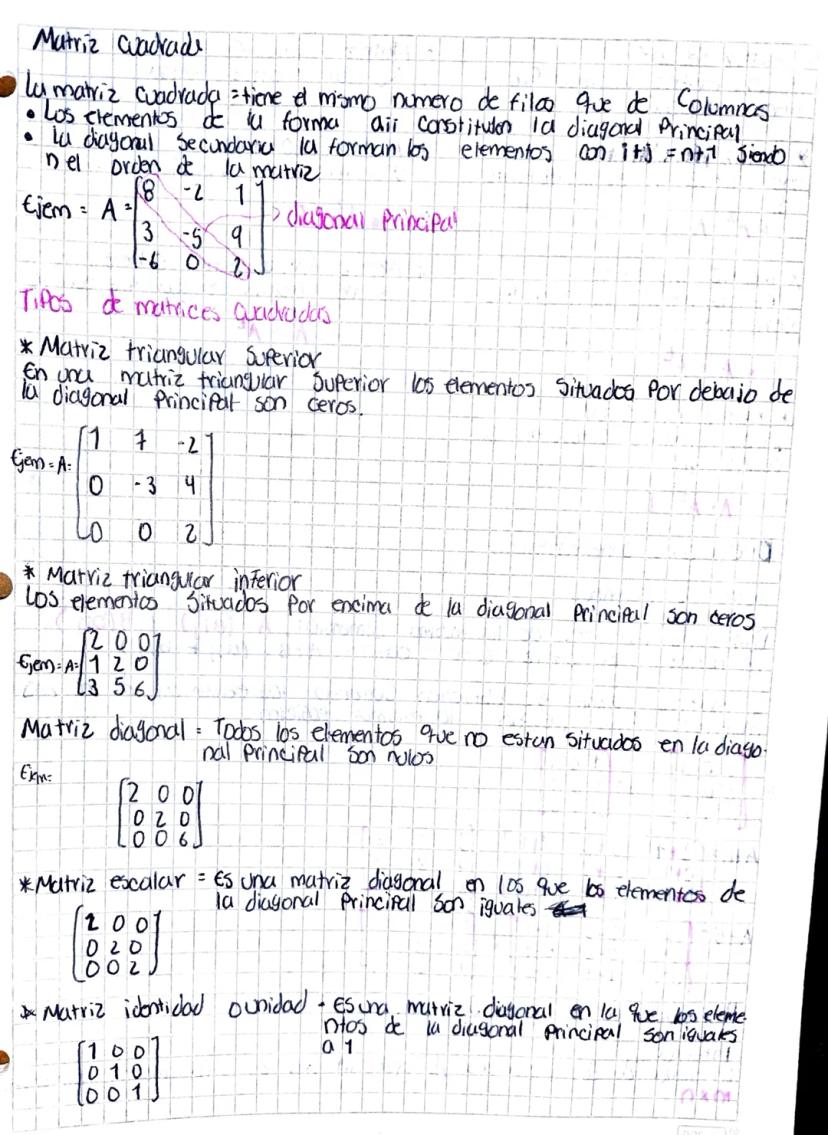 Matriz cuadrada
la matriz cuadrada = tiene el mismo numero de filas que de Columnas
• Los elementos de la forma aii constituien la diagonal Principal
• la diagonal secundaria la forman los elementos con i+j = n+1 siendo
n el orden de la matriz
Ejem = A = [8 -2 1
3 -5 9
-6 0 2] > diagonal Principal
Tipos de matrices cuadradas
* Matriz triangular Superior
En una matriz triangular Superior los elementos situados Por debajo de
la diagonal Principal son ceros.
Ejem = A = [1 7 -2
0 -3 4
0 0 2]
* Matriz triangular inferior
Los elementos Situados Por encima de la diagonal Principal son ceros
Ejem = A = [2 0 0
1 2 0
3 5 6]
Matriz diagonal = Todos los elementos que no estan situados en la diago-
nal Principal son nulos
Ejem:
[2 0 0
0 2 0
0 0 6]
* Matriz escalar = Es una matriz diagonal en los que los elementos de
la diagonal Principal son iguales
[2 0 0
0 2 0
0 0 2]
* Matriz identidad o unidad - Es una matriz diagonal en la que los eleme
ntos de la diagonal principal son iguales
a 1
[1 0 0
0 1 0
0 0 1]